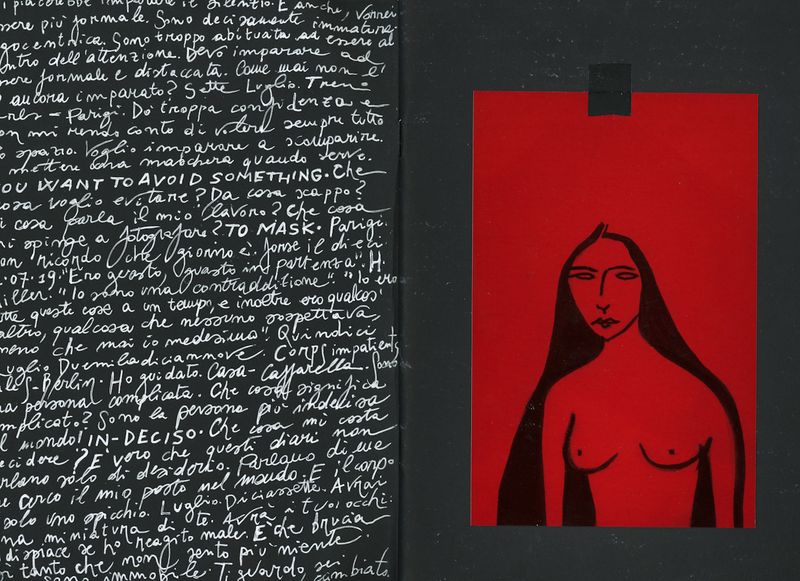 piacerebbe imparare il silenzio. E anche, vorrei
essere più formale. Sono decisamente immatura,
egocentrica. Sono troppo abituata ad essere al
centro dell'attenzione. Devo imparare ad
essere formale e distaccata. Come mai non l'
ho ancora imparato? Sette Luglio. Treno
Arles – Parigi. Do troppa confidenza e
non mi rendo conto di volere sempre tutto
lo spazio. Voglio imparare a scomparire.
A mettere una maschera quando serve.
YOU WANT TO AVOID SOMETHING. Che
cosa voglio evitare? Da cosa scappo?
Di cosa parla il mio lavoro? Che cosa
mi spinge a fotografare? TO MASK. Parigi.
Non ricordo che giorno è, forse il dieci
.07.19. "Ero guasto, guasto in partenza". H.
Miller. "Io sono una contraddizione" "Io ero
tutte queste cose a un tempo, e inoltre ero qualcos'
altro, qualcosa che nessuno sospettava,
meno che mai io medesima". Quindici
Luglio Duemiladiciannove. Corps impatients
Arles-Berlin. Ho guidato. Casa-Caffarella. Sono
una persona complicata. Che cosa significa
complicato? Sono la persona più indecisa
al mondo! IN-DECISO. Che cosa mi costa
decidere? E' vero che questi diari non
parlano solo di desiderio. Parlano di me
che cerco il mio posto nel mondo. E il corpo
è solo uno spicchio. Luglio. Diciassette. Avrai
una miniatura di te. Avrà i tuoi occhi.
E che brucia
Mi dispiace se ho reagito male.
tanto che non sento più niente.
sono immobile. Ti guardo, sei cambiato